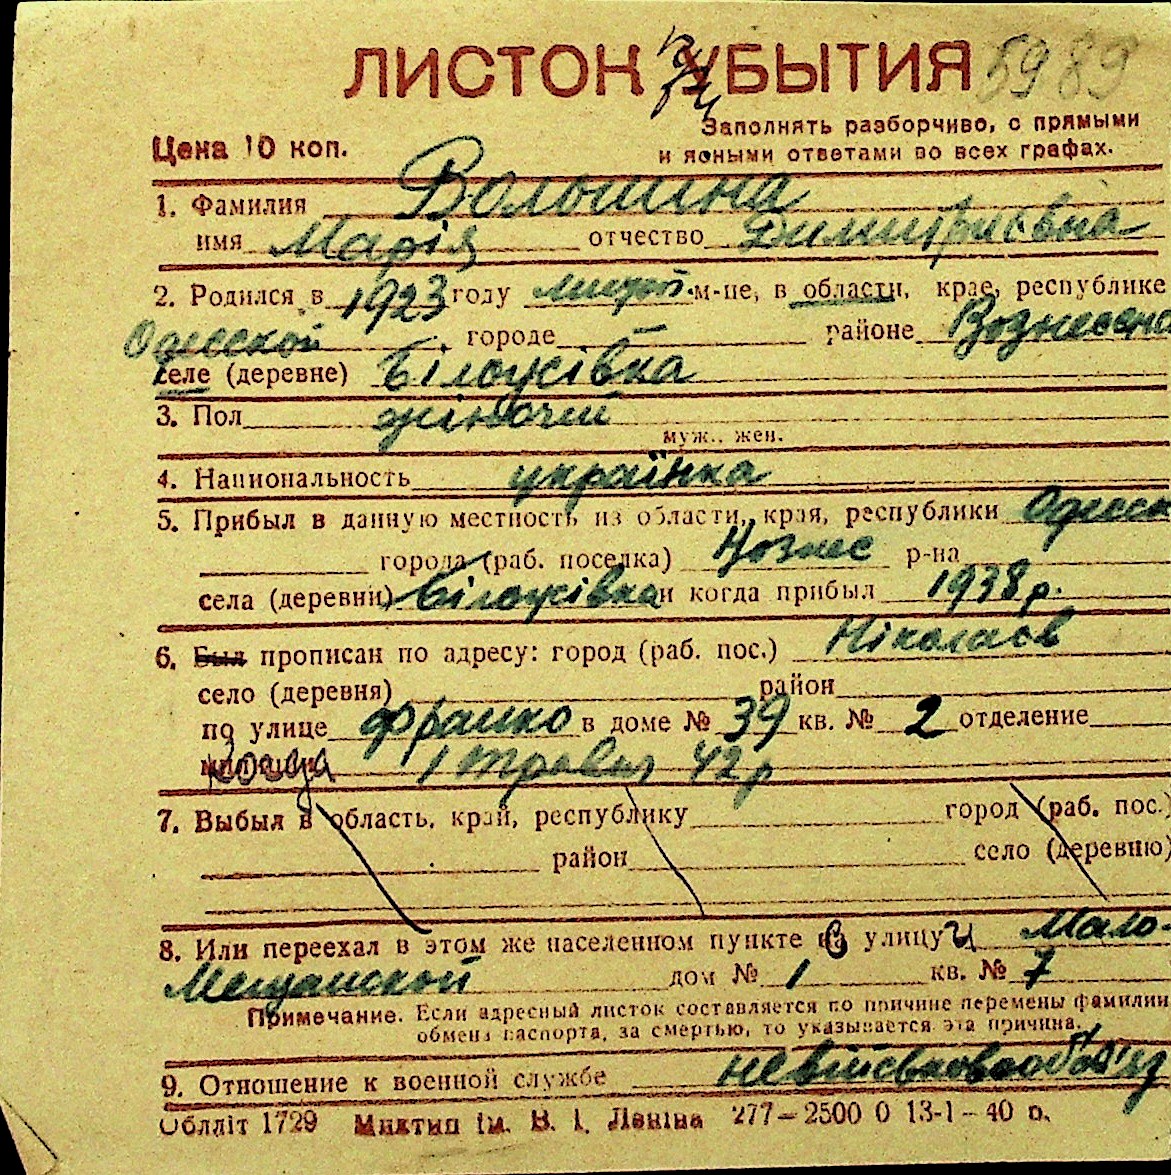 ЛИСТОК УБЫТИЯ 5989
Цена 10 коп.
Заполнять разборчиво, с прямыми
и ясными ответами во всех графах.
1. Фамилия Волошина
имя Марія отчество Димитріевна
2. Родился в 1923 году м-це, в области, крае, республике
Одесской городе районе Вознесенс
селе (деревне) Білоусівка
3. Пол жіночий
муж., жен.
4. Национальность українка
5. Прибыл в данную местность из области, края, республики Одесс
города (раб. поселка) Вознес р-на
села (деревни) Білоусівка и когда прибыл 1938 р.
6. Был прописан по адресу: город (раб. пос.) Ніколаєв
село (деревня) район
по улице Франко в доме № 39 кв. № 2 отделение
когда 1 травня 42 р
7. Выбыл в область, край, республику город (раб. пос.)
район село (деревню)
8. Или переехал в этом же населенном пункте на улицу Мало-
Мещанской дом № 1 кв. № 7
Примечание. Если адресный листок составляется по причине перемены фамилии
обмена паспорта, за смертью, то указывается эта причина.
9. Отношение к военной службе невійсьвовообов'яз
Облліт 1729 Миктип ім. В. І. Леніна 277–2500 0 13-1–40 р.